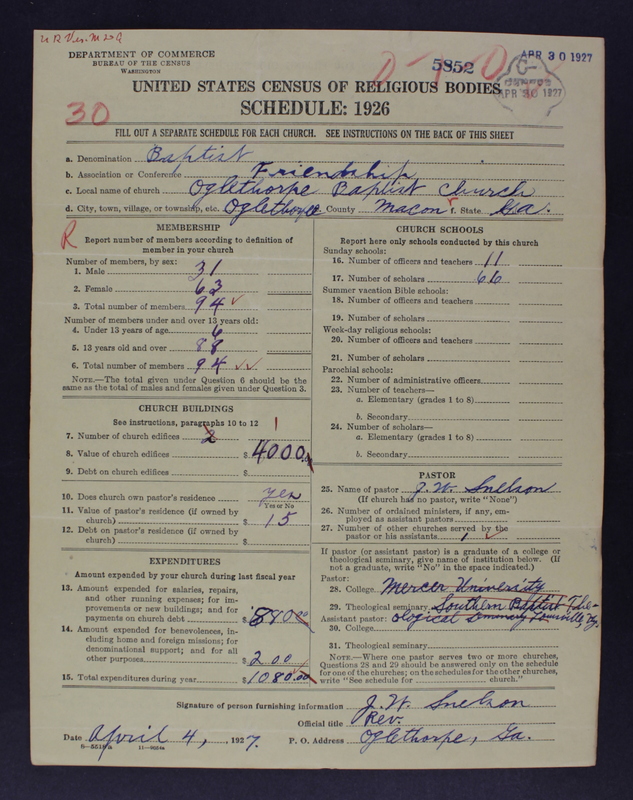 U R Ver. M 20 A
DEPARTMENT OF COMMERCE
BUREAU OF THE CENSUS
WASHINGTON
5852
APR 30 1927
APR 30 1927
UNITED STATES CENSUS OF RELIGIOUS BODIES
30
SCHEDULE: 1926
FILL OUT A SEPARATE SCHEDULE FOR EACH CHURCH. SEE INSTRUCTIONS ON THE BACK OF THIS SHEET
a. Denomination Baptist
b. Association or Conference Friendship
c. Local name of church Oglethorpe Baptist Church
d. City, town, village, or township, etc. Oglethorpe County Macon f. State Ga.
R
MEMBERSHIP
Report number of members according to definition of
member in your church
Number of members, by sex:
1. Male 31
2. Female 63
3. Total number of members 94
Number of members under and over 13 years old:
4. Under 13 years of age 6
5. 13 years old and over 88
6. Total number of members 94
NOTE.—The total given under Question 6 should be the
same as the total of males and females given under Question 3.
CHURCH BUILDINGS
See instructions, paragraphs 10 to 12
7. Number of church edifices 2 1
8. Value of church edifices $ 4000.00
9. Debt on church edifices $
10. Does church own pastor's residence yes
Yes or No
11. Value of pastor's residence (if owned by
church) $ 15
12. Debt on pastor's residence (if owned by
church) $
EXPENDITURES
Amount expended by your church during last fiscal year
13. Amount expended for salaries, repairs,
and other running expenses; for im-
provements or new buildings; and for
payments on church debt $ 880.00
14. Amount expended for benevolences, in-
cluding home and foreign missions; for
denominational support; and for all
other purposes $ 200
15. Total expenditures during year $ 1080.00
CHURCH SCHOOLS
Report here only schools conducted by this church
Sunday schools:
16. Number of officers and teachers 11
17. Number of scholars 66
Summer vacation Bible schools:
18. Number of officers and teachers
19. Number of scholars
Week-day religious schools:
20. Number of officers and teachers
21. Number of scholars
Parochial schools:
22. Number of administrative officers
23. Number of teachers—
a. Elementary (grades 1 to 8)
b. Secondary
24. Number of scholars—
a. Elementary (grades 1 to 8)
b. Secondary
PASTOR
25. Name of pastor J. W. Snelson
(If church has no pastor, write "None")
26. Number of ordained ministers, if any, em-
ployed as assistant pastors
27. Number of other churches served by the
pastor or his assistants 1
If pastor (or assistant pastor) is a graduate of a college or
theological seminary, give name of institution below. (If
not a graduate, write "No" in the space indicated.)
Pastor:
28. College Mercer University
29. Theological seminary Southern Baptist The-
Assistant pastor: ological Seminary Louisville Ky
30. College
31. Theological seminary
NOTE.—Where one pastor serves two or more churches,
Questions 28 and 29 should be answered only on the schedule
for one of the churches; on the schedules for the other churches,
write "See schedule for church."
Signature of person furnishing information J. W. Snelson
Official title Rev.
Date April 4, 1927. P. O. Address Oglethorpe, Ga.
8-5518a 11-9084a